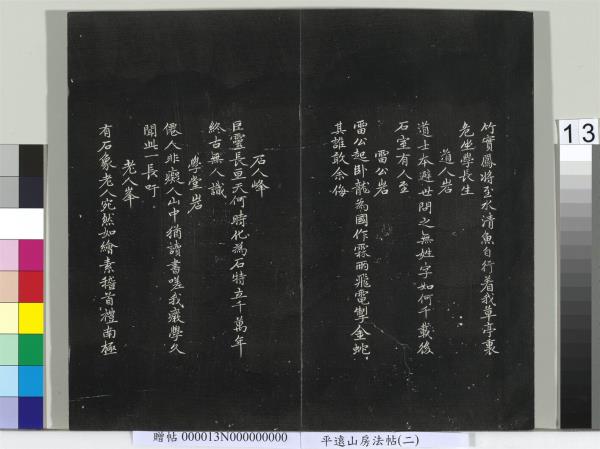 竹實鳳將至水清魚自行着我草亭裏
危坐學長生
道人岩
道士本避世問之無姓字如何千載後
石室有人至
雷公岩
雷公起卧龍為國作霖雨飛電掣金蛇
其誰敢余侮
石人峰
巨靈長亘天何時化為石特立千萬年
終古無人識
學堂岩
僊人非癡人山中猶讀書嗟我癡學久
聞此一長吁
老人峯
有石象老人宛然如繪素稽首禮南極
13
贈帖 000013N000000000
平遠山房法帖(二)